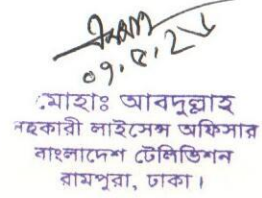 ০৭.৫.২৮
মোহাঃ আবদুল্লাহ
সহকারী লাইসেন্স অফিসার
বাংলাদেশ টেলিভিশন
রামপুরা, ঢাকা।